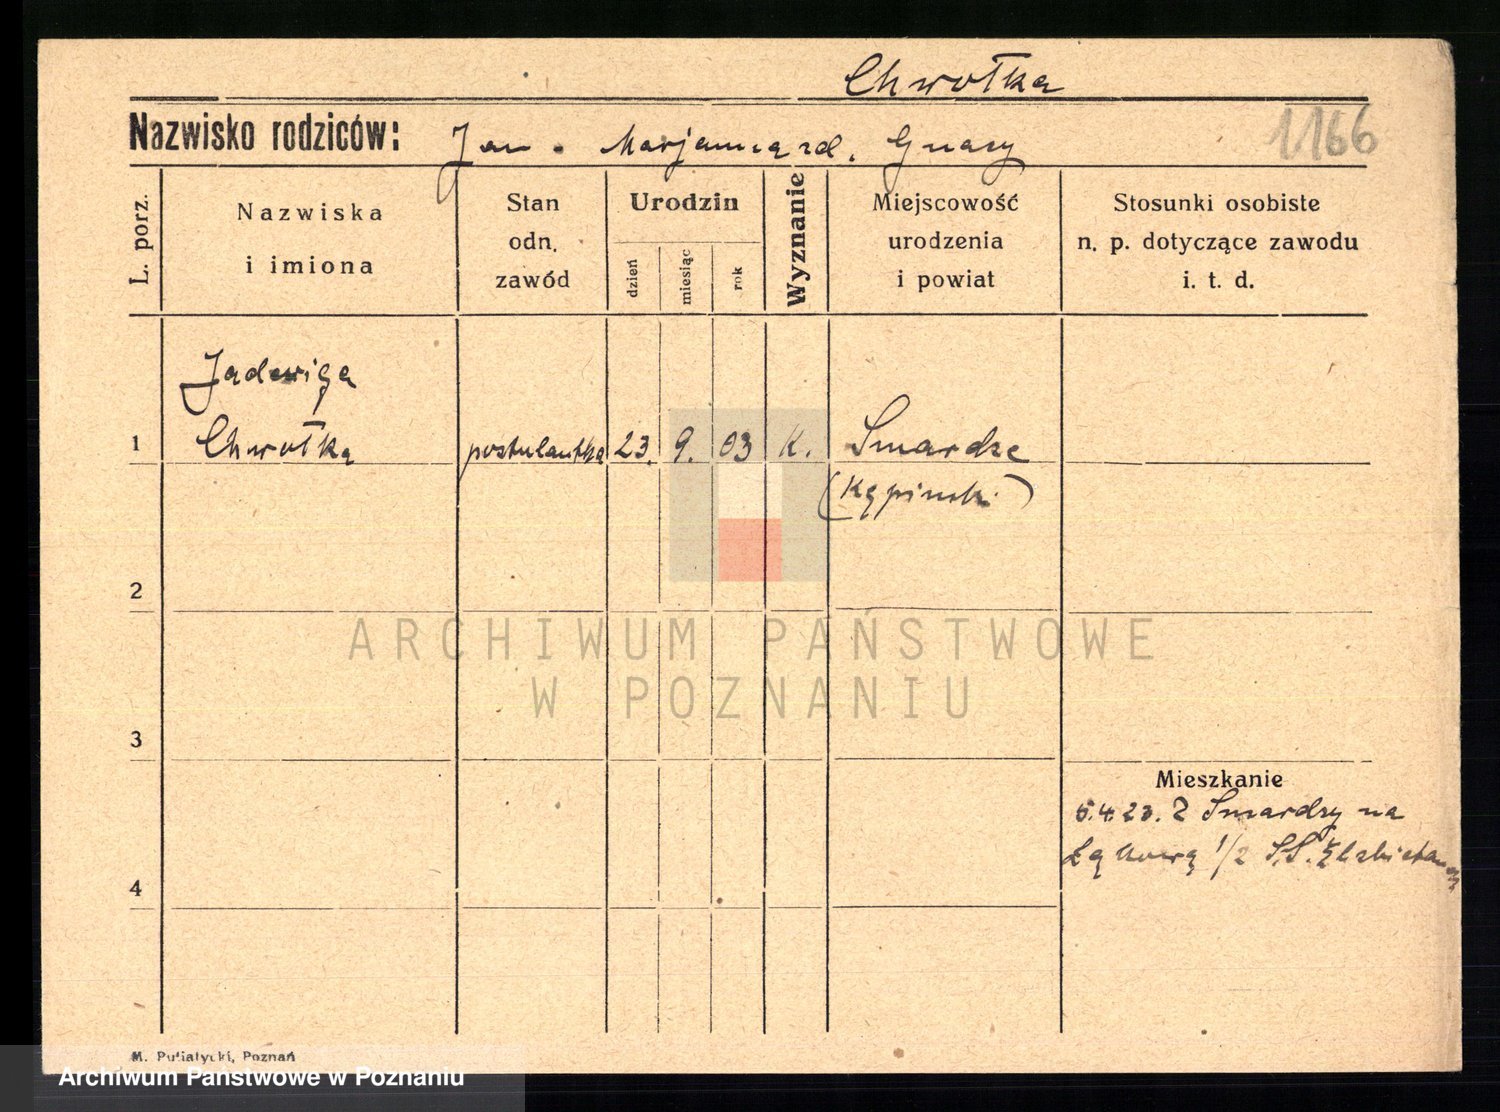 Chwołka
Nazwisko rodziców: Jan. Marjanna zd. Gnacy
1166
L. porz.
Nazwiska
i imiona
Stan
odn.
zawód
Urodzin
dzień
miesiąc
rok
Wyznanie
Miejscowość
urodzenia
i powiat
Stosunki osobiste
n. p. dotyczące zawodu
i. t. d.
Jadwiga
1 Chwołka postulantka 23. 9. 03 K. Smardze
(Kępinski)
2
ARCHIWUM PAŃSTWOWE
W POZNANIU
3
Mieszkanie
5.4.23. Z Smardzy na
Łąkową 1/2 S.S. Elżbietanek
4
M. Putiatycki, Poznań
Archiwum Państwowe w Poznaniu